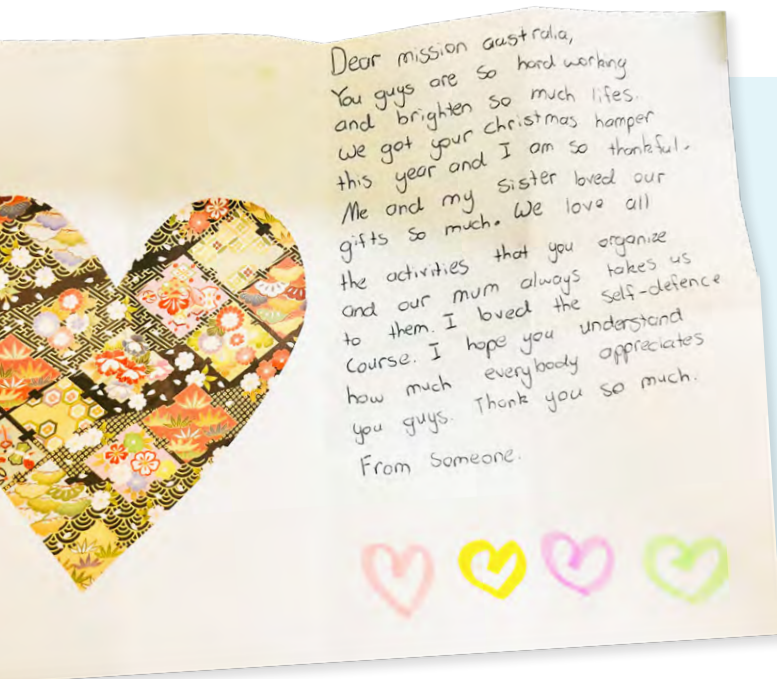 Dear mission australia,
You guys are so hard working
and brighten so much lifes.
We got your christmas hamper
this year and I am so thankful.
Me and my sister loved our
gifts so much. We love all
the activities that you organize
and our mum always takes us
to them. I loved the self-defence
course. I hope you understand
how much everybody appreciates
you guys. Thank you so much.
From Someone.